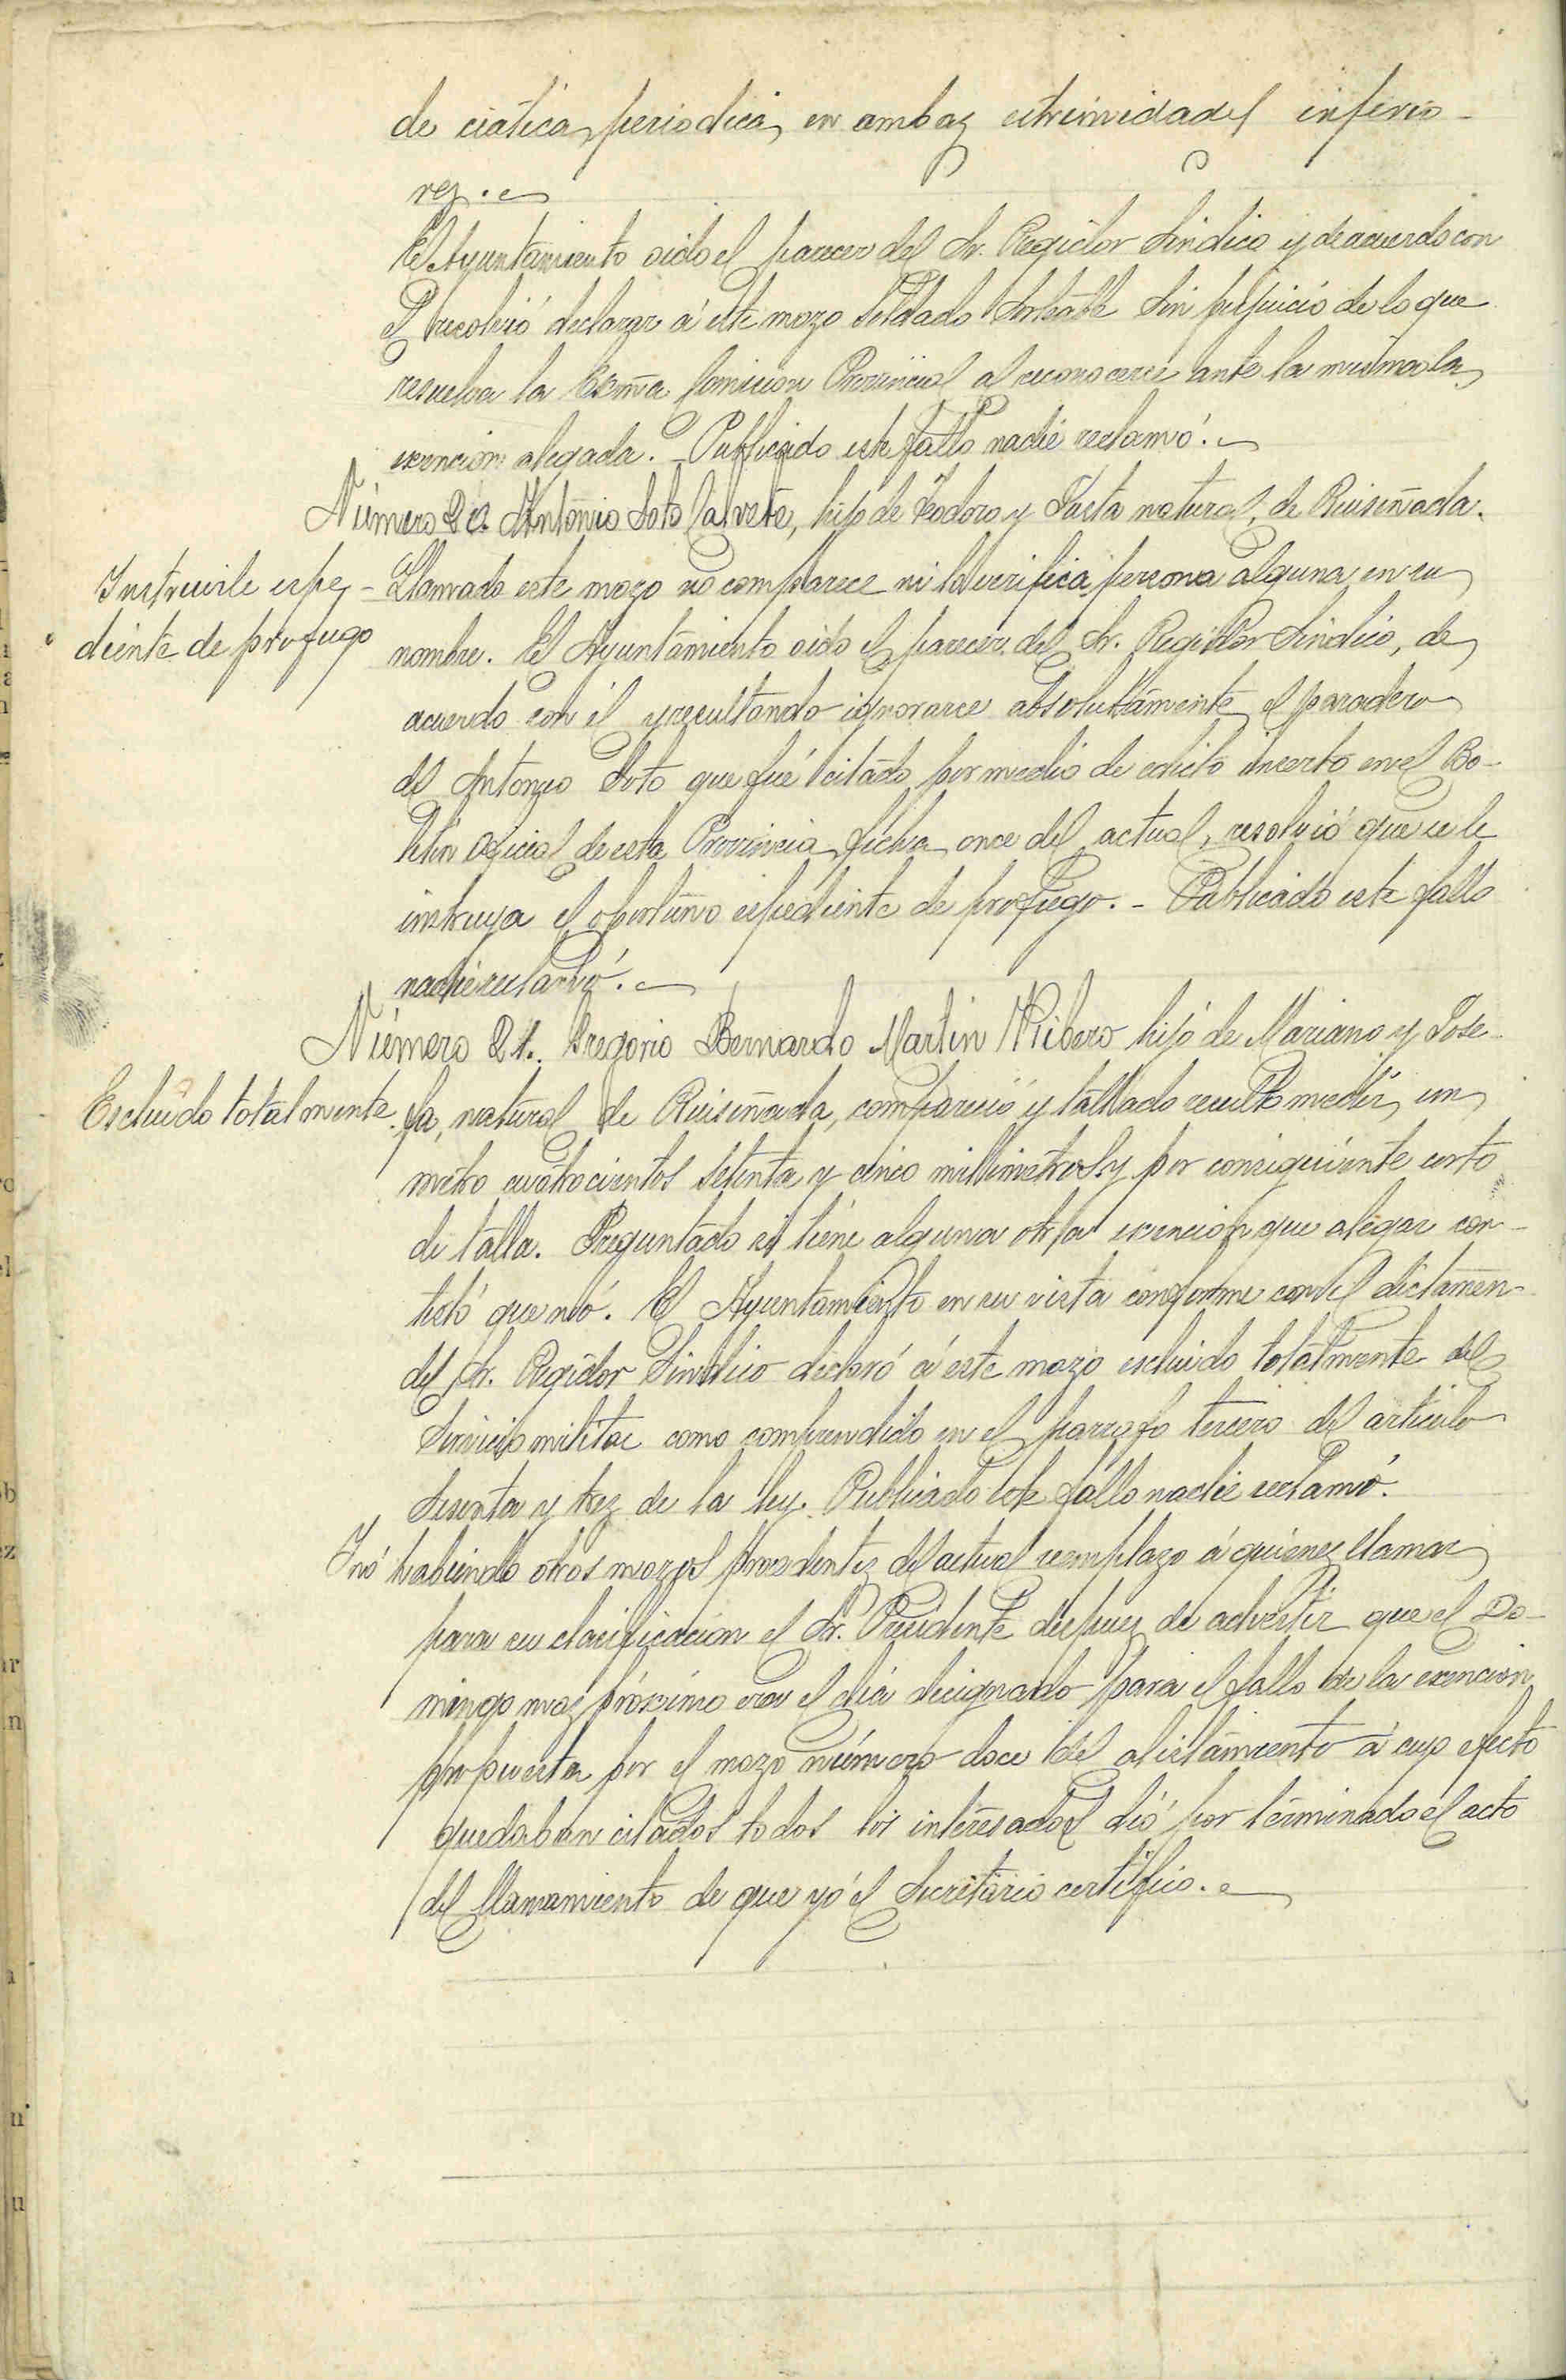 de ciática periodica en ambaz estremidades inferio-
rez.
El Ayuntamiento oido el parecer del Sr. Regidor Sindico y de acuerdo con
el resolvió declarar á este mozo Soldado Sorteable sin perjuicio de lo que
resuelva la Exmã Comision Provincial al reconocerse ante la misma la
exencion alegada. - Publicado este fallo nadie reclamó.
Número 20. Antonio Soto Calvete, hijo de Teodoro y Justa natural de Ruiseñada.
Instruirle espe-
diente de profugo
Llamado este mozo no comparece ni lo verifica persona alguna en su
nombre. El Ayuntamiento oido el parecer del Sr. Regidor Sindico, de
acuerdo con él y resultando ignorarse absolutamente el paradero
del Antonio Soto que fué citado por medio de edicto inserto en el Bo-
letin Oficial de esta Provincia fecha once del actual, resolvió que se le
instruya el oportuno espediente de profugo. - Publicado este fallo
nadie reclamó.
Número 21. Gregorio Bernardo Martin Ribero hijo de Mariano y Jose-
Escluido totalmente.
fa, natural de Ruiseñada, compareció y tallado resultó medir un
metro cuatrocientos setenta y cinco millimetros y por consiguiente corto
de talla. Preguntado si tiene alguna otra exencion que alegar con-
testó que nó. El Ayuntamiento en su vista conforme con el dictamen
del Sr. Regidor Sindico declaró á este mozo escluido totalmente del
Servicio militar como comprendido en el parrafo tercero del articulo
Sesenta y trez de la ley. Publicado este fallo nadie reclamó.
Y nó habiendo otros mozos procedentez del actual reemplazo á quienez llamar
para su clasificacion el Sr. Presidente despuez de advertir que el Do-
mingo maz próximo era el dia designado para el fallo de la exencion
propuesta por el mozo número doce del alistamiento á cuyo efecto
quedaban citados todos los interesados dió por terminado el acto
del llamamiento de que yó el Secretario certifico.